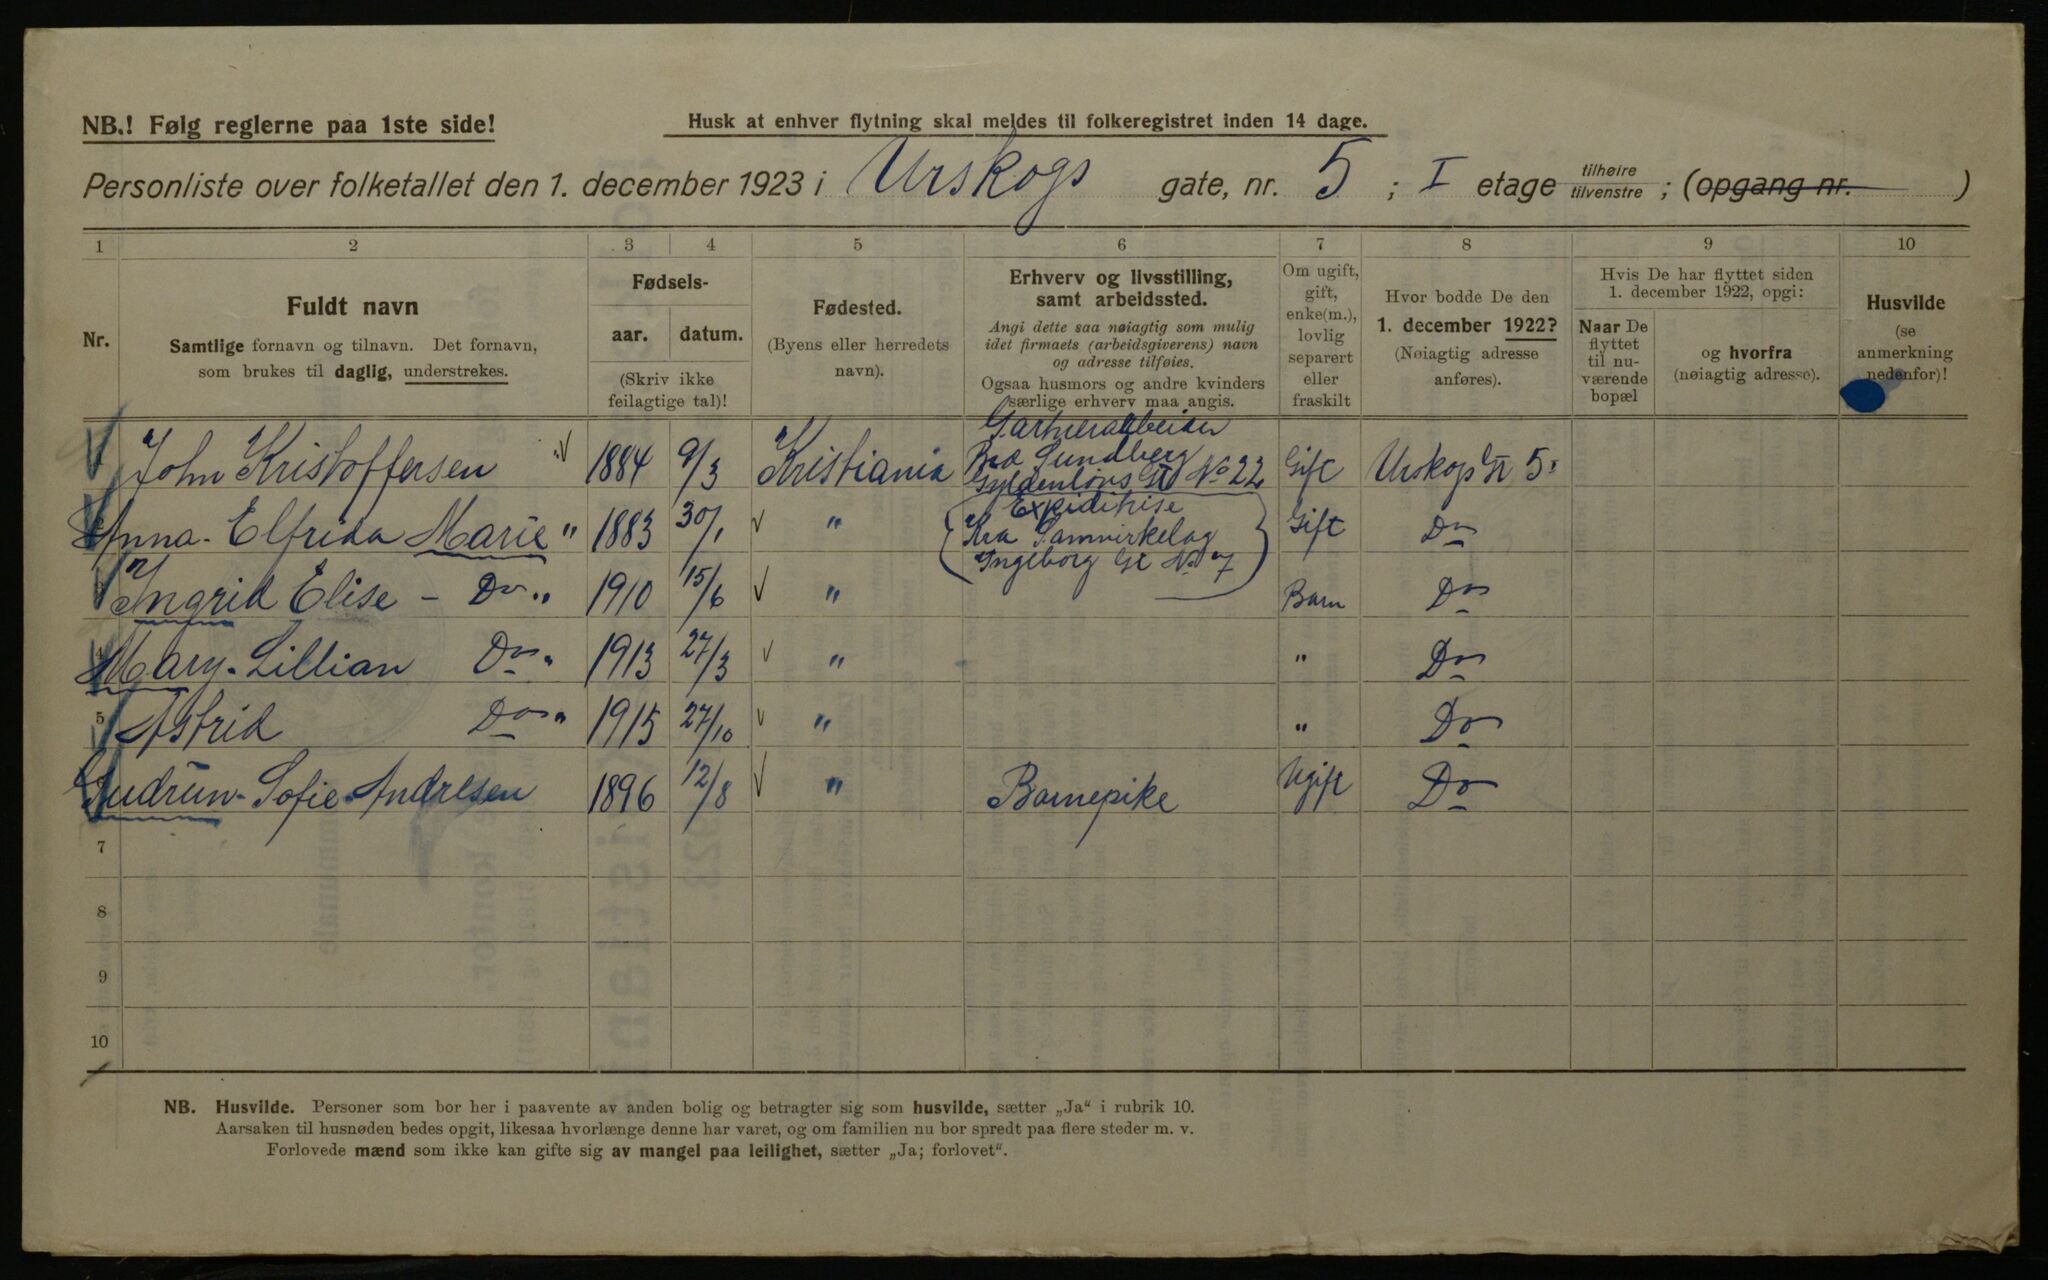 NB.! Følg reglerne paa 1ste side!
Husk at enhver flytning skal meldes til folkeregistret inden 14 dage.
Personliste over folketallet den 1. december 1923 i Urskogs gate, nr. 5 ; I etage tilhøire tilvenstre ; (opgang nr. )
1 2 3 4 5 6 7 8 9 10
Nr.
Fuldt navn
Samtlige fornavn og tilnavn. Det fornavn,
som brukes til daglig, understrekes.
Fødsels-
aar. datum.
(Skriv ikke
feilagtige tal)!
Fødested.
(Byens eller herredets
navn).
Erhverv og livsstilling,
samt arbeidssted.
Angi dette saa nøiagtig som mulig
idet firmaets (arbeidsgiverens) navn
og adresse tilføies.
Ogsaa husmors og andre kvinders
særlige erhverv maa angis.
Om ugift,
gift,
enke(m.),
lovlig
separert
eller
fraskilt
Hvor bodde De den
1. december 1922?
(Nøiagtig adresse
anføres).
Hvis De har flyttet siden
1. december 1922, opgi:
Naar De
flyttet
til nu-
værende
bopæl
og hvorfra
(nøiagtig adresse).
Husvilde
(se
anmerkning
nedenfor)!
Gartnerarbeider
John Kristoffersen 1884 9/3 Kristiania Brd Sundberg Gift Urskogs Gt 5
Gyldenløvs Gt No 22
Expiditrise
Anna - Elfrida Marie " 1883 30/1 " Kra Samvirkelag Gift Do
Ingeborg Gt No 7
Ingrid Elise - Do " 1910 15/6 " Barn Do
4 Mary - Lillian Do " 1913 27/3 " " Do
5 Astrid Do " 1915 27/10 " " Do
Gudrun - Sofie Andresen 1896 12/8 " Barnepike Ugift Do
7
8
9
10
NB. Husvilde. Personer som bor her i paavente av anden bolig og betragter sig som husvilde, sætter „Ja“ i rubrik 10.
Aarsaken til husnøden bedes opgit, likesaa hvorlænge denne har varet, og om familien nu bor spredt paa flere steder m. v.
Forlovede mænd som ikke kan gifte sig av mangel paa leilighet, sætter „Ja; forlovet“.